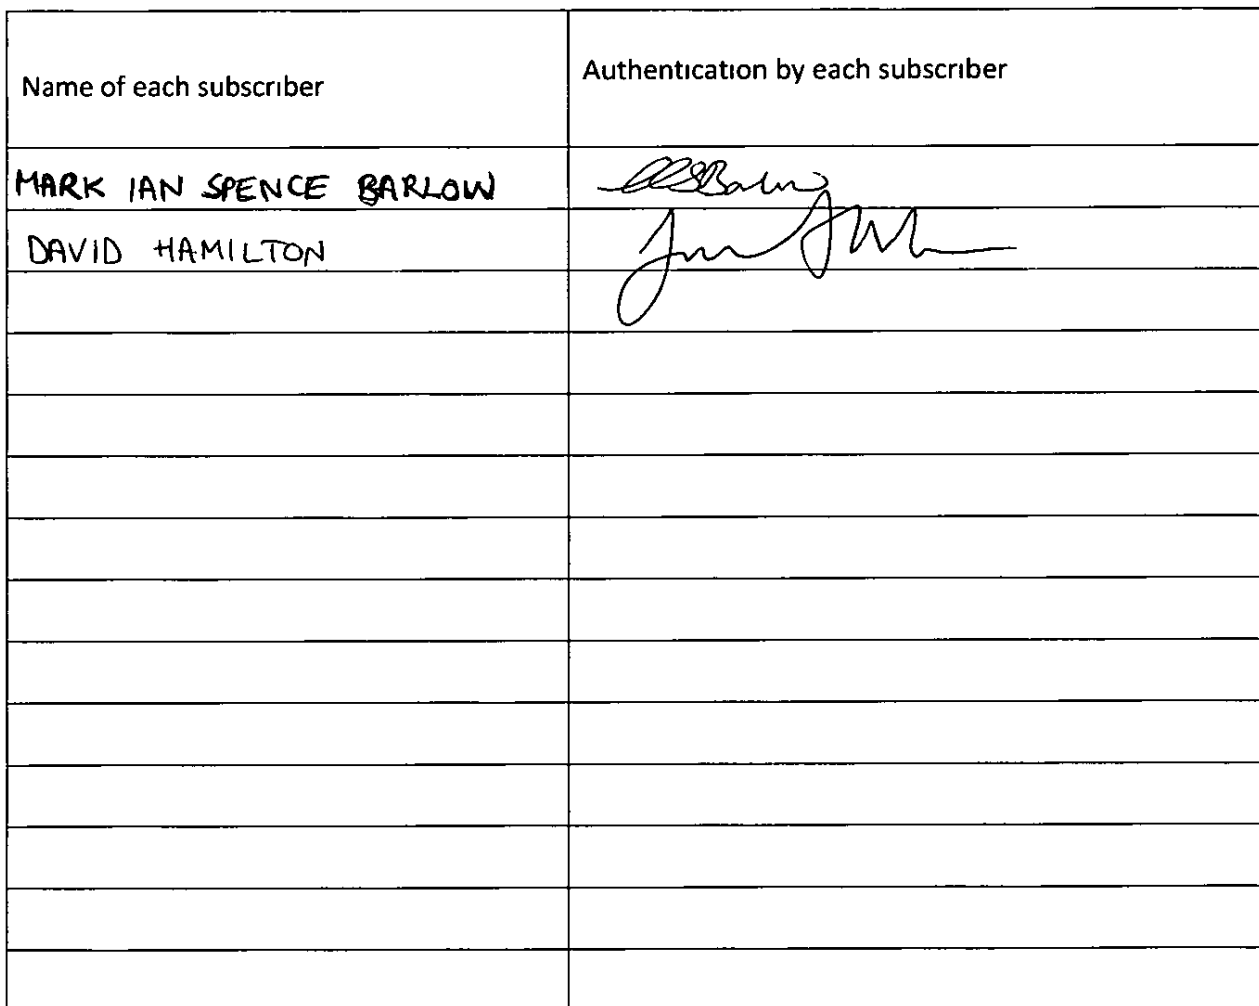 Name of each subscriber
Authentication by each subscriber
MARK IAN SPENCE BARLOW
DAVID HAMILTON